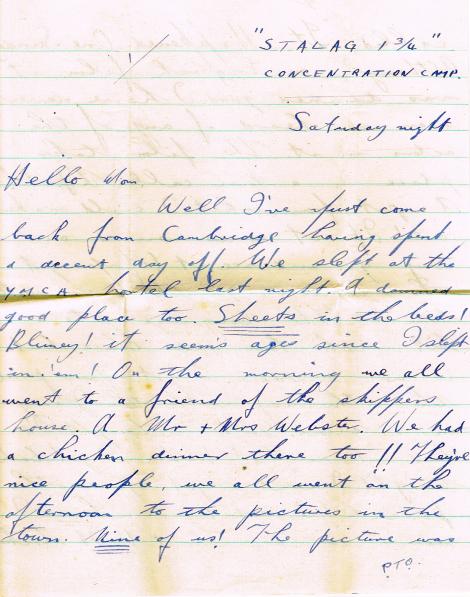 1/
"STALAG 1 3/4"
CONCENTRATION CAMP.
Saturday night
Hello Mom.
Well I've just come
back from Cambridge having spent
a decent day off. We slept at the
YMCA. hostel last night. A damned
good place too. Sheets in the beds!
Blimey! it seems ages since I slept
in 'em! On the morning we all
went to a friend of the skippers
house. A Mr + Mrs Webster. We had
a chicken dinner there too!! They're
nice people, we all went in the
afternoon to the pictures in the
town. Nine of us! The picture was
PTO.